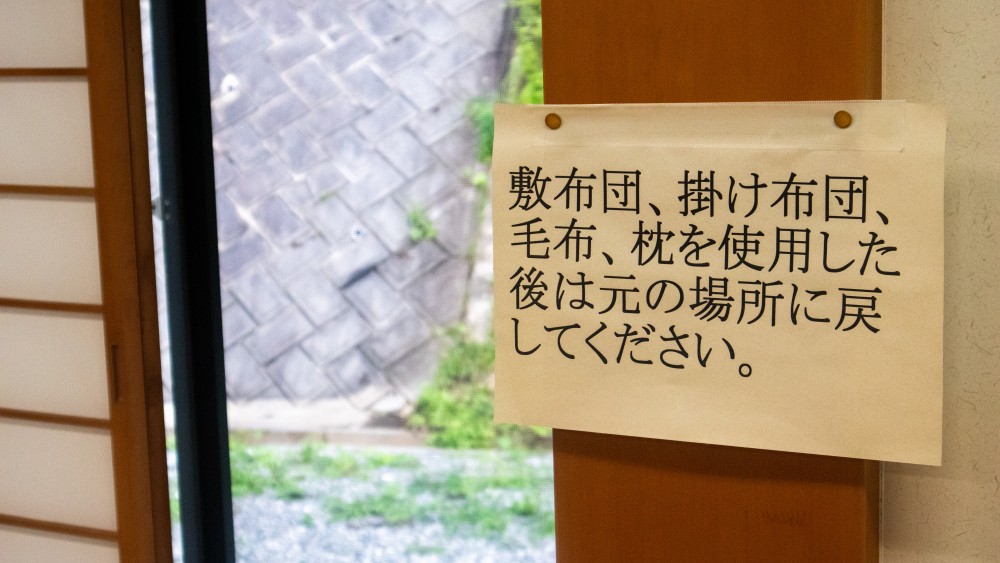 敷布団、掛け布団、
毛布、枕を使用した
後は元の場所に戻
してください。